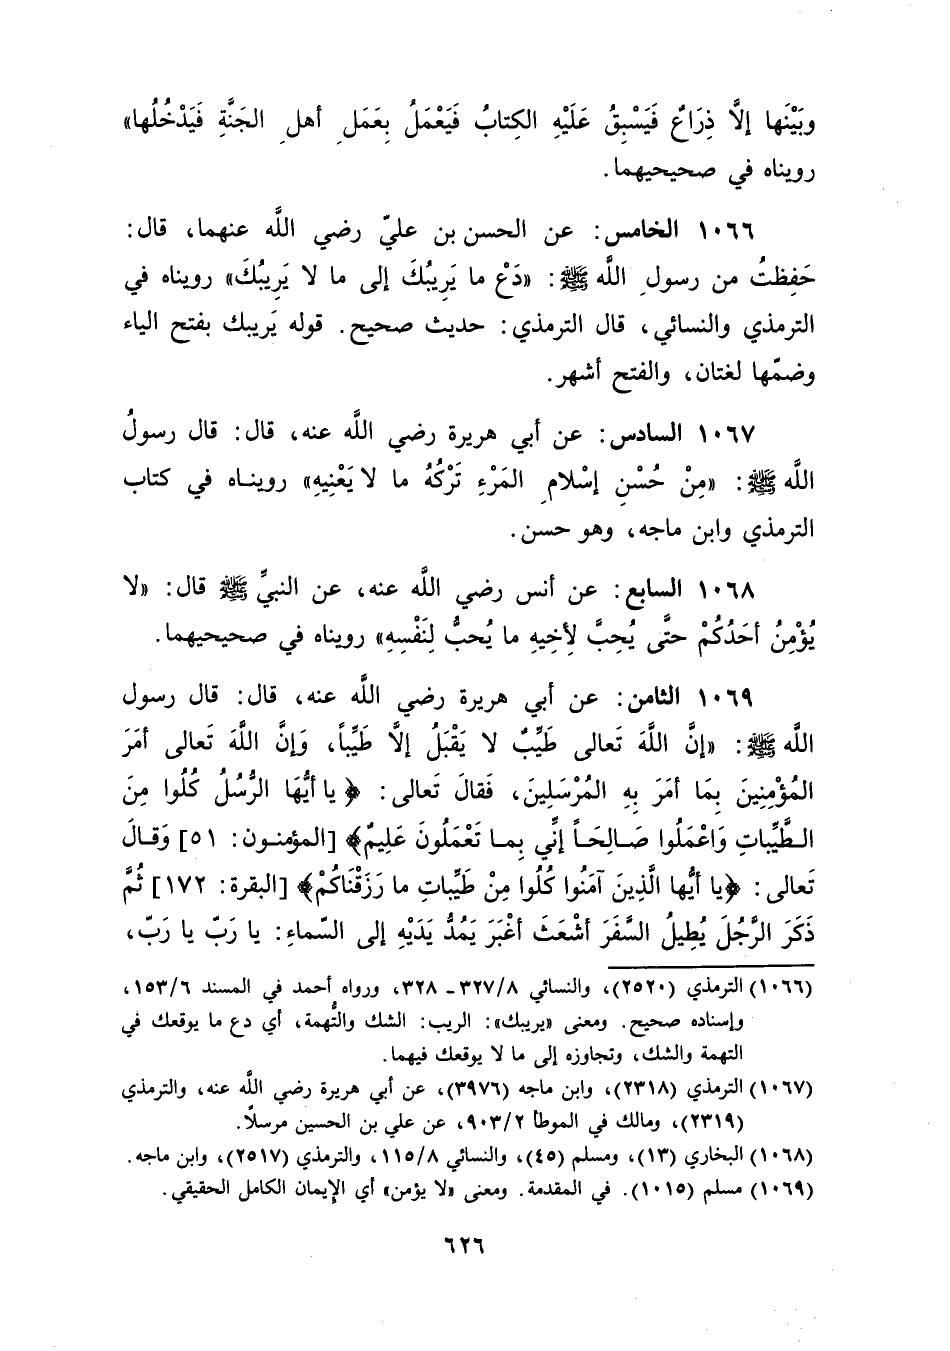 وبَيْنَها إلَّا ذِرَاعٌ فَيَسْبِقُ عَلَيْهِ الكِتابُ فَيَعْمَلُ بِعَمَلِ أهلِ الجَنَّةِ فَيَدْخُلُها»
رويناه في صحيحيهما.
١٠٦٦ الخامس: عن الحسن بن عليّ رضي اللَّه عنهما، قال:
حَفِظتُ من رسولِ اللَّه ﷺ: «دَعْ ما يَرِيبُكَ إلى ما لا يَرِيبُكَ» رويناه في
الترمذي والنسائي، قال الترمذي: حديث صحيح. قوله يَريبك بفتح الياء
وضمّها لغتان، والفتح أشهر.
١٠٦٧ السادس: عن أبي هريرة رضي اللَّه عنه، قال: قال رسولُ
اللَّه ﷺ: «مِنْ حُسْنِ إسْلامِ المَرْءِ تَرْكُهُ ما لا يَعْنِيهِ» رويناه في كتاب
الترمذي وابن ماجه، وهو حسن.
١٠٦٨ السابع: عن أنس رضي اللَّه عنه، عن النبيِّ ﷺ قال: «لا
يُؤْمِنُ أحَدُكُمْ حتَّى يُحِبَّ لِأخِيهِ ما يُحبُّ لِنَفْسِهِ» رويناه في صحيحيهما.
١٠٦٩ الثامن: عن أبي هريرة رضي اللَّه عنه، قال: قال رسول
اللَّه ﷺ: «إنَّ اللَّهَ تَعالى طَيِّبٌ لا يَقْبَلُ إلَّا طَيِّباً، وَإنَّ اللَّهَ تَعالى أمَرَ
المُؤْمِنِينَ بِمَا أمَرَ بِهِ المُرْسَلِينَ، فَقالَ تَعالى: ﴿يا أيُّهَا الرُّسُلُ كُلُوا مِنَ
الطَّيِّباتِ وَاعْمَلُوا صَالِحَاً إنِّي بِما تَعْمَلُونَ عَلِيمٌ﴾ [المؤمنون: ٥١] وَقالَ
تَعالى: ﴿يا أيُّها الَّذِينَ آمَنُوا كُلُوا مِنْ طَيِّباتِ ما رَزَقْنَاكُمْ﴾ [البقرة: ١٧٢] ثُمَّ
ذَكَرَ الرَّجُلَ يُطِيلُ السَّفَرَ أشْعَثَ أغْبَرَ يَمُدُّ يَدَيْهِ إلى السّماءِ: يا رَبّ يا رَبّ،
(١٠٦٦) الترمذي (٢٥٢٠)، والنسائي ٣٢٧/٨ - ٣٢٨، ورواه أحمد في المسند ١٥٣/٦،
وإسناده صحيح. ومعنى «يريبك»: الريب: الشك والتُّهمة، أي دع ما يوقعك في
التهمة والشك، وتجاوزه إلى ما لا يوقعك فيهما.
(١٠٦٧) الترمذي (٢٣١٨)، وابن ماجه (٣٩٧٦)، عن أبي هريرة رضي اللَّه عنه، والترمذي
(٢٣١٩)، ومالك في الموطأ ٩٠٣/٢، عن علي بن الحسين مرسلاً.
(١٠٦٨) البخاري (١٣)، ومسلم (٤٥)، والنسائي ١١٥/٨، والترمذي (٢٥١٧)، وابن ماجه.
(١٠٦٩) مسلم (١٠١٥). في المقدمة. ومعنى «لا يؤمن» أي الإيمان الكامل الحقيقي.
٦٢٦